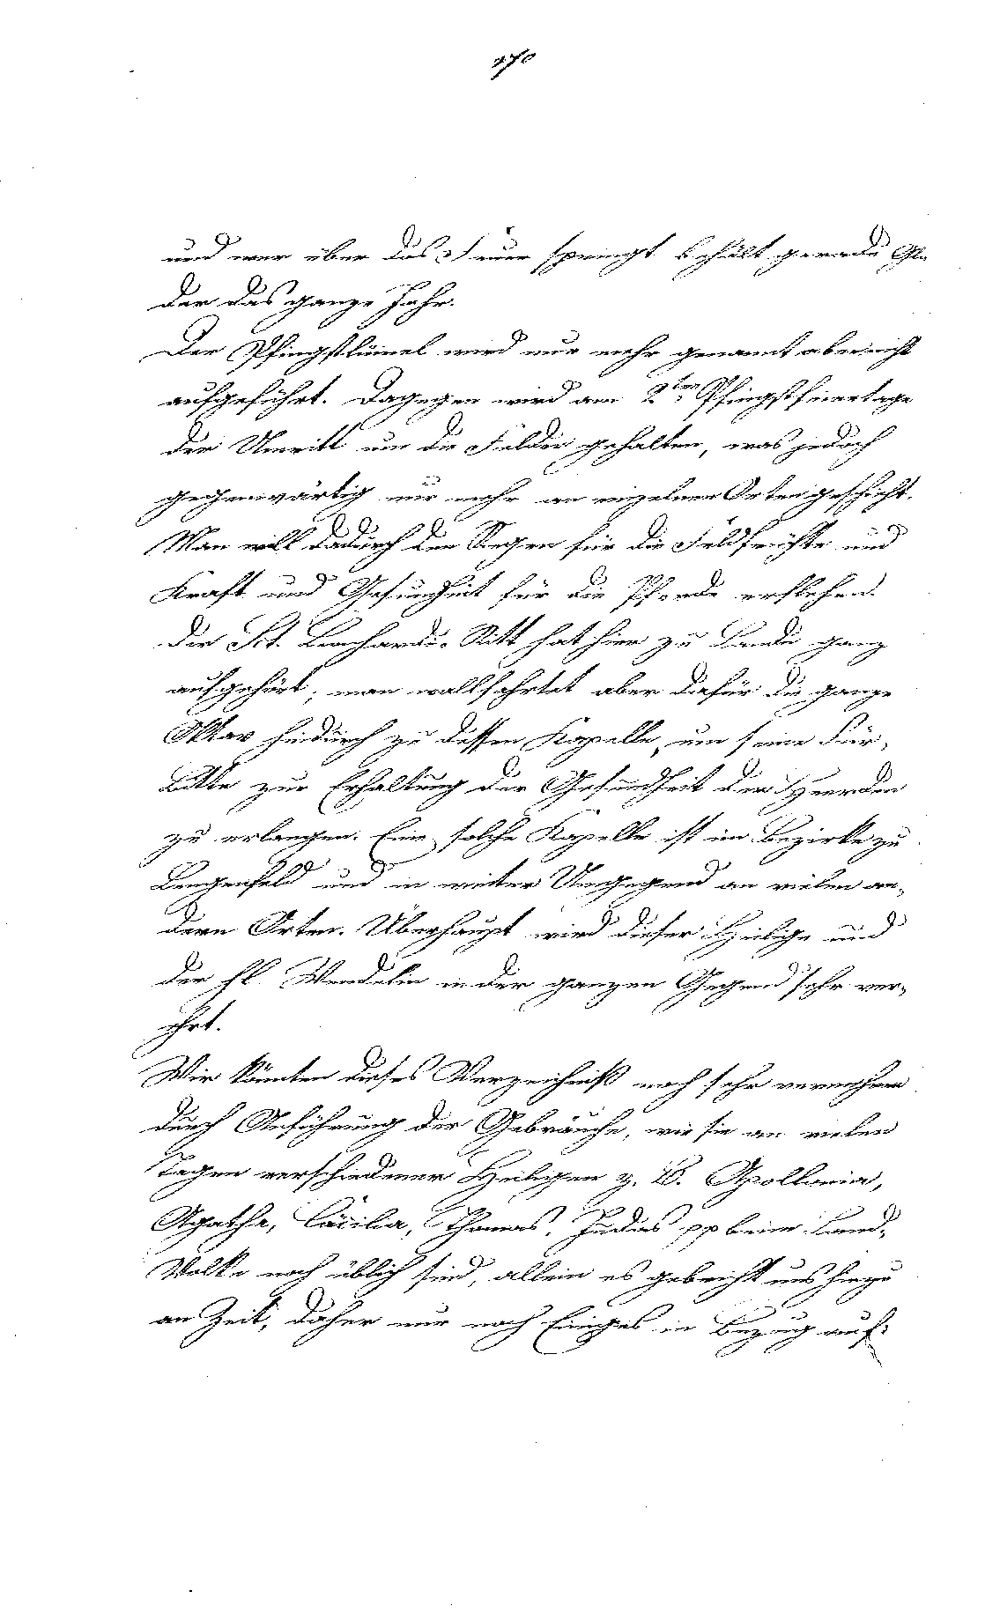 270
und wer über das Feuer springt behält gerade Glie
der das ganze Jahr.
Der Pfingstlümel wird nur mehr genannt aber nicht
aufgeführt. Dagegen wird am 2ten Pfingstfeiertage
der Umritt um die Felder gehalten, was jedoch
gegenwärtig nur mehr an einzelnen Orten geschieht.
Man will dadurch den Segen für die Feldfrüchte und
Kraft und Gesundheit für die Pferde erflehen.
Der Sct. Leonhardi-Ritt hat hier zu Lande ganz
aufgehört; man wallfahrtet aber dafür die ganze
Oktav hindurch zu dessen Kapelle, um seine Für-
bitte zur Erhaltung der Gesundheit der Heerden
zu erlangen. Eine solche Kapelle ist im Bezirke zu
Lengenfeld und in weiter Umgegend an vielen an-
dern Orten. Überhaupt wird dieser Heilige und
der hl. Wendelin in der ganzen Gegend sehr ver-
ehrt.
Wir könnten dieses Verzeichniß noch sehr vermehren
durch Anführung der Gebräuche, wie sie an vielen
Tagen verschiedener Heiligen z. B. Apollonia,
Agatha, Cäcilia, Thomas, Judas pp beim Land-
Volke noch üblich sind, allein es gebricht uns hiezu
an Zeit, daher nur noch Einiges in Bezug auf: